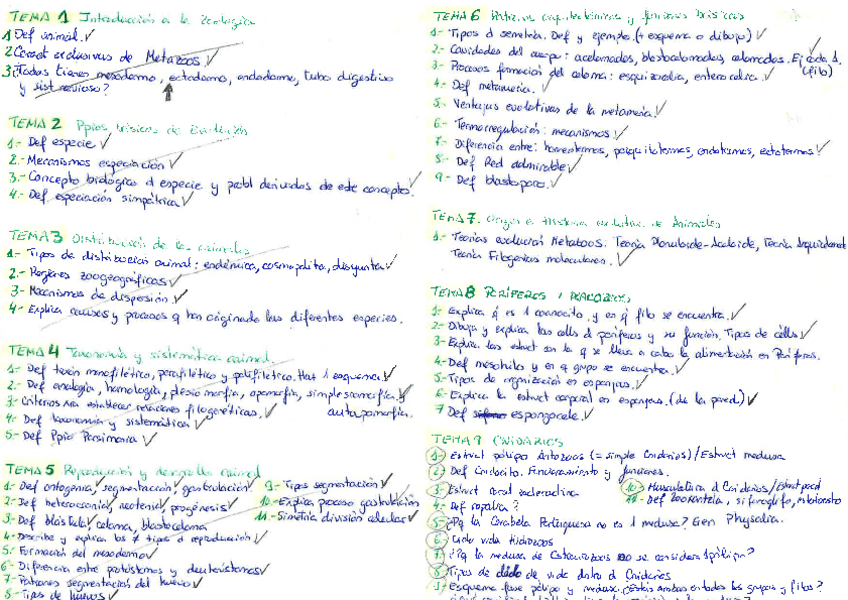 TEMA 1 Introducción a la Zoología
1 Def animal. ✓
2 Caract exclusivas de Metazoos ✓
3 ¿Todos tienen mesodermo, ectodermo, endodermo, tubo digestivo
y sist nervioso?
TEMA 2 Ppios básicos de Evolución
1.- Def especie ✓
2.- Mecanismos especiación ✓
3.- Concepto biológico d especie y probl derivados de este concepto.
4.- Def especiación simpátrica ✓
TEMA 3 Distribución de los animales
1.- Tipos de distribución animal: endémica, cosmopolita, disyunta ✓
2.- Regiones zoogeográficas ✓
3.- Mecanismos de dispersión ✓
4.- Explica causas y procesos q han originado las diferentes especies.
TEMA 4 Taxonomía y sistemática animal
1.- Def taxón monofilético, parafilético y polifilético. Haz 1 esquema ✓
2.- Def analogía, homología, plesiomorfia, apomorfia, simplesiomorfia. ✓
autapomorfia.
3.- Criterios para establecer relaciones filogenéticas. ✓
4.- Def taxonomía y sistemática ✓
5.- Def Ppio Parsimonia ✓
TEMA 5 Reproducción y desarrollo animal
1.- Def ontogenia, segmentación, gastrulación ✓
2.- Def heterocronía, neotenia, progénesis ✓
3.- Def blástula, celoma, blastoceloma
4.- Describe y explica los ≠ tipos d reproducción ✓
5.- Formación del mesodermo ✓
6.- Diferencia entre protóstomos y deuteróstomos ✓
7.- Patrones segmentación del huevo ✓
8.- Tipos de huevos ✓
9.- Tipos segmentación ✓
10.- Explica proceso gastrulación
11.- Simetría división celular ✓
TEMA 6 Patrones arquitectónicos y funciones básicas
1.- Tipos d simetría. Def y ejemplo. (+ esquema o dibujo) ✓
2.- Cavidades del cuerpo: acelomados, blastocelomados, celomados. Ej cada 1.
(filo)
3.- Procesos formación del celoma: esquizocelia, enterocelia. ✓
4.- Def metamería. ✓
5.- Ventajas evolutivas de la metamería. ✓
6.- Termorregulación: mecanismos. ✓
7.- Diferencia entre: homeotermos, poiquilotermos, endotermos, ectotermos ✓
8.- Def Red admirable ✓
9.- Def blastoporo. ✓
TEMA 7. Origen e Historia evolutiva de Animales
1.- Teorías evolución Metazoos: Teoría Planuloide-Aceloide, Teoría
Teoría Filogenias moleculares. ✓
TEMA 8 PORÍFEROS
1.- Explica q es 1 coanocito, y en q filo se encuentra. ✓
2.- Dibuja y explica las cells d poríferos y su función. Tipos de cells ✓
3.- Explica las estruct con la q se lleva a cabo la alimentación en Poríferos.
4.- Def mesohilo y en q grupo se encuentra. ✓
5.- Tipos de organización en esponjas. ✓
6.- Explica la estruct corporal en esponjas. (de la pared) ✓
7 Def espongocele. ✓
TEMA 9 CNIDARIOS
1.- Estruct pólipo Antozoos (= simple Cnidarios) / Estruct medusa
2.- Def Cnidocito. Funcionamiento y funciones.
3.- Estruct coral escleractinia
4.- Def ropalia?
5.- ¿Pq la Carabela Portuguesa no es 1 medusa? Gen Physalia.
6.- Ciclo vida hidrozoos
7.- ¿Pq la medusa de Escifozoos no se considera 1 pólipo?
8.- Tipos de ciclo de vida dntro d Cnidarios
9.- Esquema fase pólipo y medusa. ¿Están ambas en todos los grupos y filos?
10.- Musculatura d Cnidarios / Estruct pared
11.- Def zooxantela, sifonoglifo,